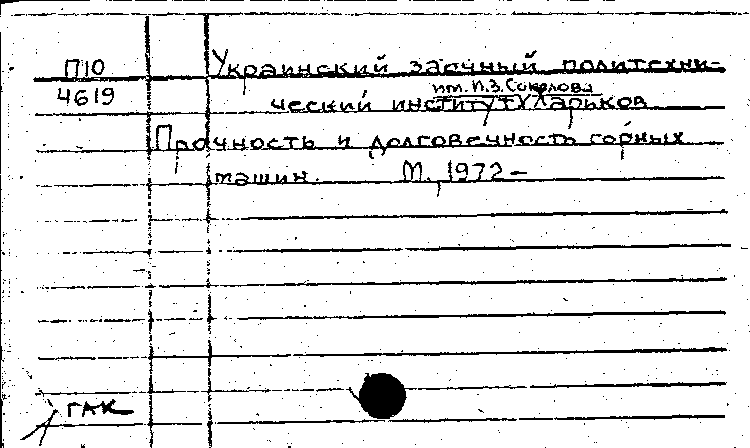 П10
4619
Украинский заочный политехни-
им. И.З. Соколова
ческий институт Харьков
Прочность и долговечность горных
машин. М., 1972 –
ГАК